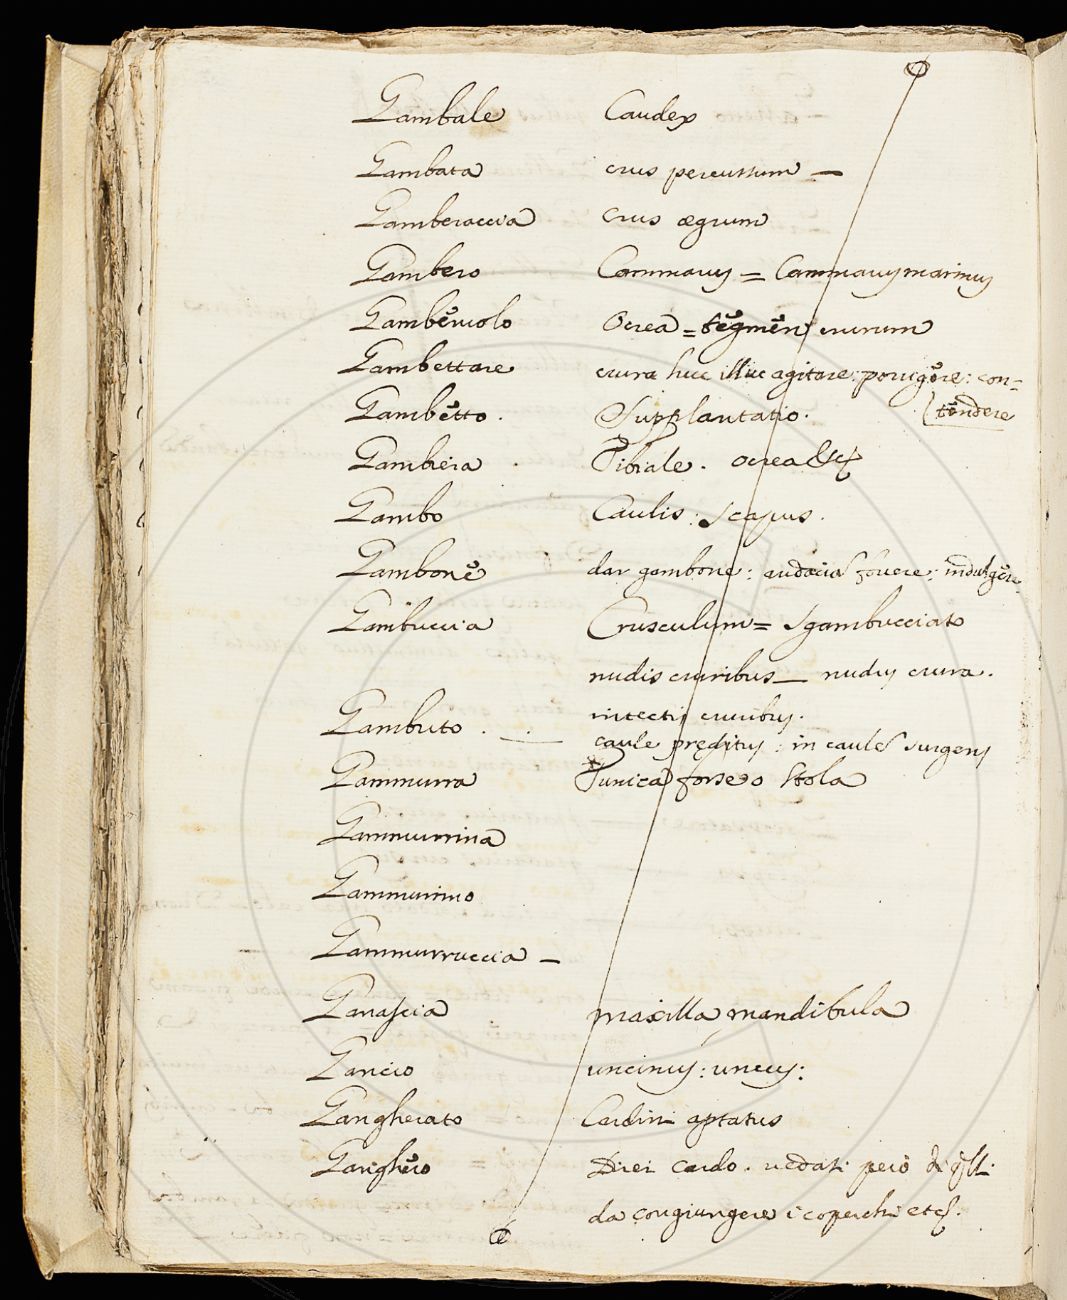 Gambale Caudex
Gambata crus percussum —
Gamberaccia crus ægrum
Gambero Cammarus = Cammarus marinus
Gamberuolo Ocrea = tegmen crurum
Gambettare crura huc illuc agitare: porrigere: con=
(tendere
Gambetto . Supplantatio.
Gambiera . Tibiale . ocrea &c
Gambo Caulis : Scapus .
Gambone dar gambone : audaciã fovere : indulgere
Gambuccia Crusculum = Sgambucciato
nudis cruribus — nudus crura .
intectis cruribus .
Gambuto . caule præditus : in caulẽ surgens
Gammurra Tunica forse o Stola
Gammurrina
Gammurrino
Gammurruccia —
Ganascia maxilla mandibula
Gancio uncinus : uncus :
Gangherato Cardini aptatus
Ganghero Direi cardo . vedasi però di qlli
da congiungere i coperchi etc .